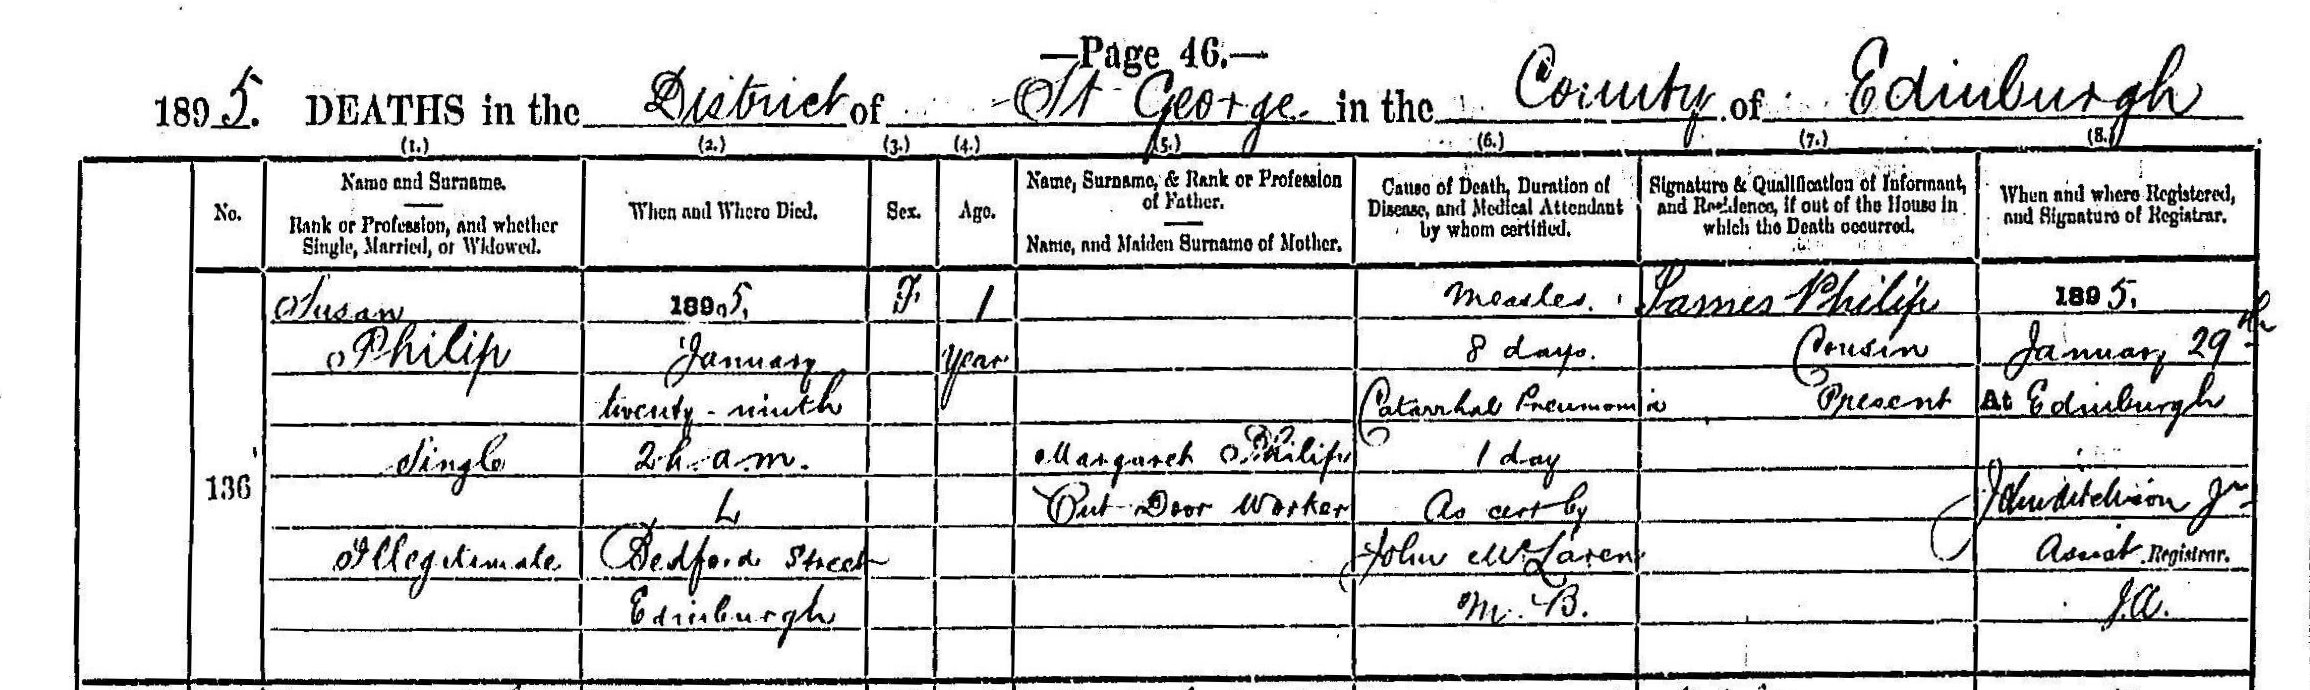 —Page 46.—
1895. DEATHS in the District of St George in the County of Edinburgh
(1.) (2.) (3.) (4.) (5.) (6.) (7.) (8.)
No.
Name and Surname.
Rank or Profession, and whether
Single, Married, or Widowed.
When and Where Died.
Sex.
Age.
Name, Surname, & Rank or Profession
of Father.
Name, and Maiden Surname of Mother.
Cause of Death, Duration of
Disease, and Medical Attendant
by whom certified.
Signature & Qualification of Informant,
and Residence, if out of the House in
which the Death occurred.
When and where Registered,
and Signature of Registrar.
136
Susan
Philip
Single
Illegitimate
1895,
January
twenty-ninth
2h. a.m.
Bedford Street
Edinburgh
F.
1
year
Margaret Philip
Out-Door Worker
Measles.
8 days.
Catarrhal Pneumonia
1 day
As cert by
John McLaren
M.B.
James Philip
Cousin
Present
1895,
January 29th
At Edinburgh
Jr
Assist. Registrar.
J.A.